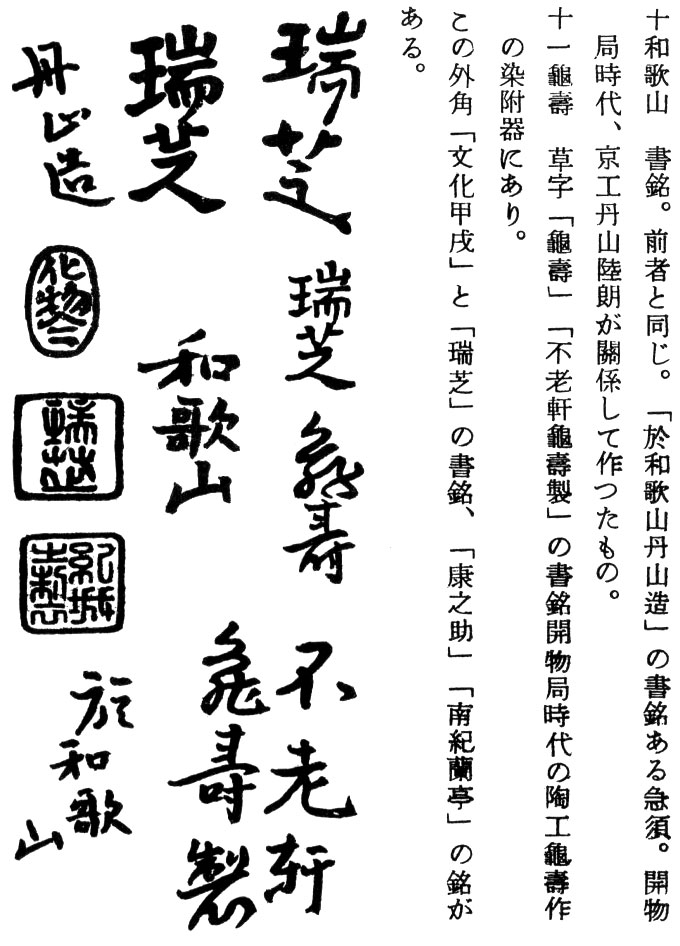 十和歌山　書銘。前者と同じ。「於和歌山丹山造」の書銘ある急須。開物
局時代、京工丹山陸朗が關係して作つたもの。
十一龜壽　草字「龜壽」「不老軒龜壽製」の書銘開物局時代の陶工龜壽作
の染附器にあり。
この外角「文化甲戌」と「瑞芝」の書銘、「康之助」「南紀蘭亭」の銘が
ある。
瑞芝
瑞芝
龜寿
不老軒
龜寿製
瑞芝
和歌山
丹山造
瑞芝
於和歌山